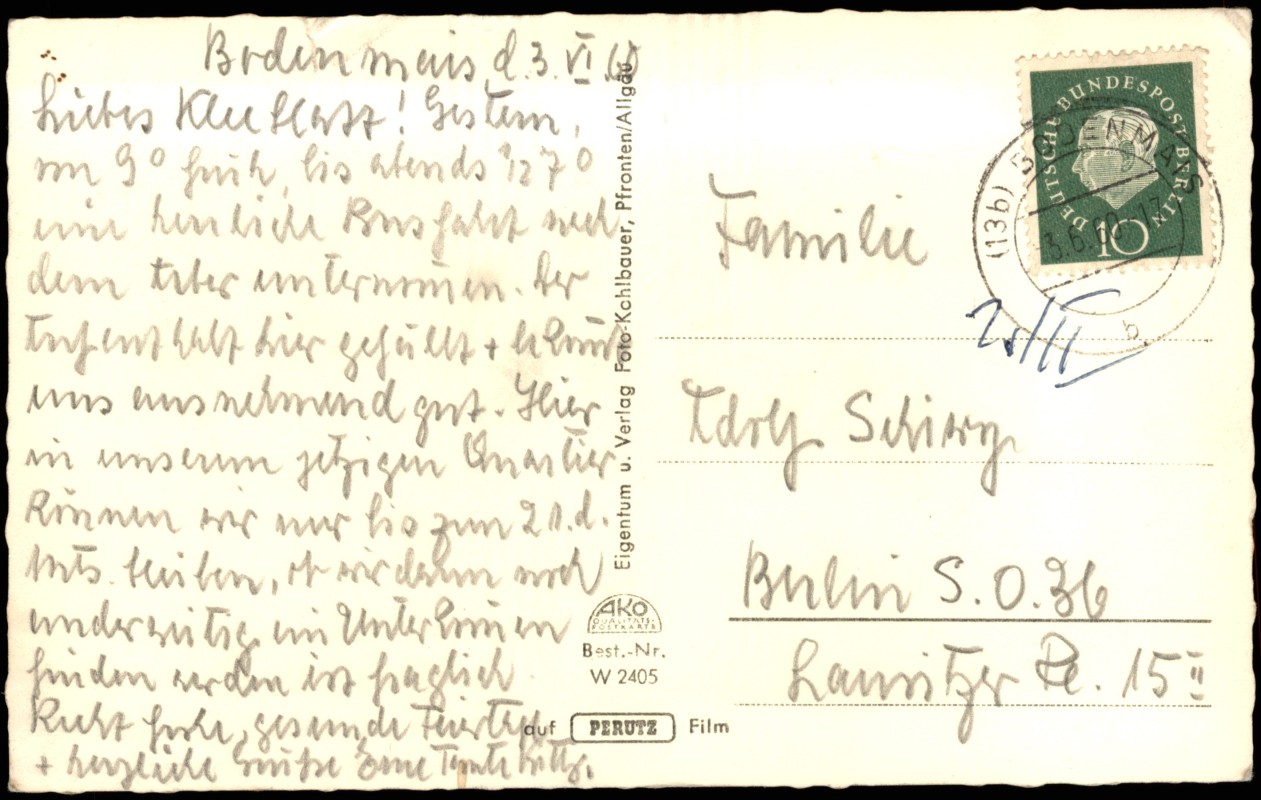 Bodenmais, d. 3. VI. 60
Liebes Kleeblatt! Gestern,
von 9° früh, bis abends 1/2 7°
eine herrliche Busfahrt nach
dem Arber unternommen. Der
Aufenthalt hier gefällt + bekommt
uns ausnehmend gut. Hier
in unserem jetzigen Quartier
können wir nur bis zum 21. d.
Mts. bleiben, ob wir dann noch
anderweitig ein Unterkommen
finden werden ist fraglich.
Recht frohe, gesunde Feiertage
+ herzliche Grüße Eure Tante
Eigentum u. Verlag Foto-Kohlbauer, Pfronten/Allgäu
AKO
QUALITÄTS-
POSTKARTE
Best.-Nr.
W 2405
auf PERUTZ Film
DEUTSCHE BUNDESPOST BERLIN
10
(13b) BODENMAIS
3.6.60-17
b
Familie
Adolf
Berlin S.O.36
Lausitzer Pl. 15 II